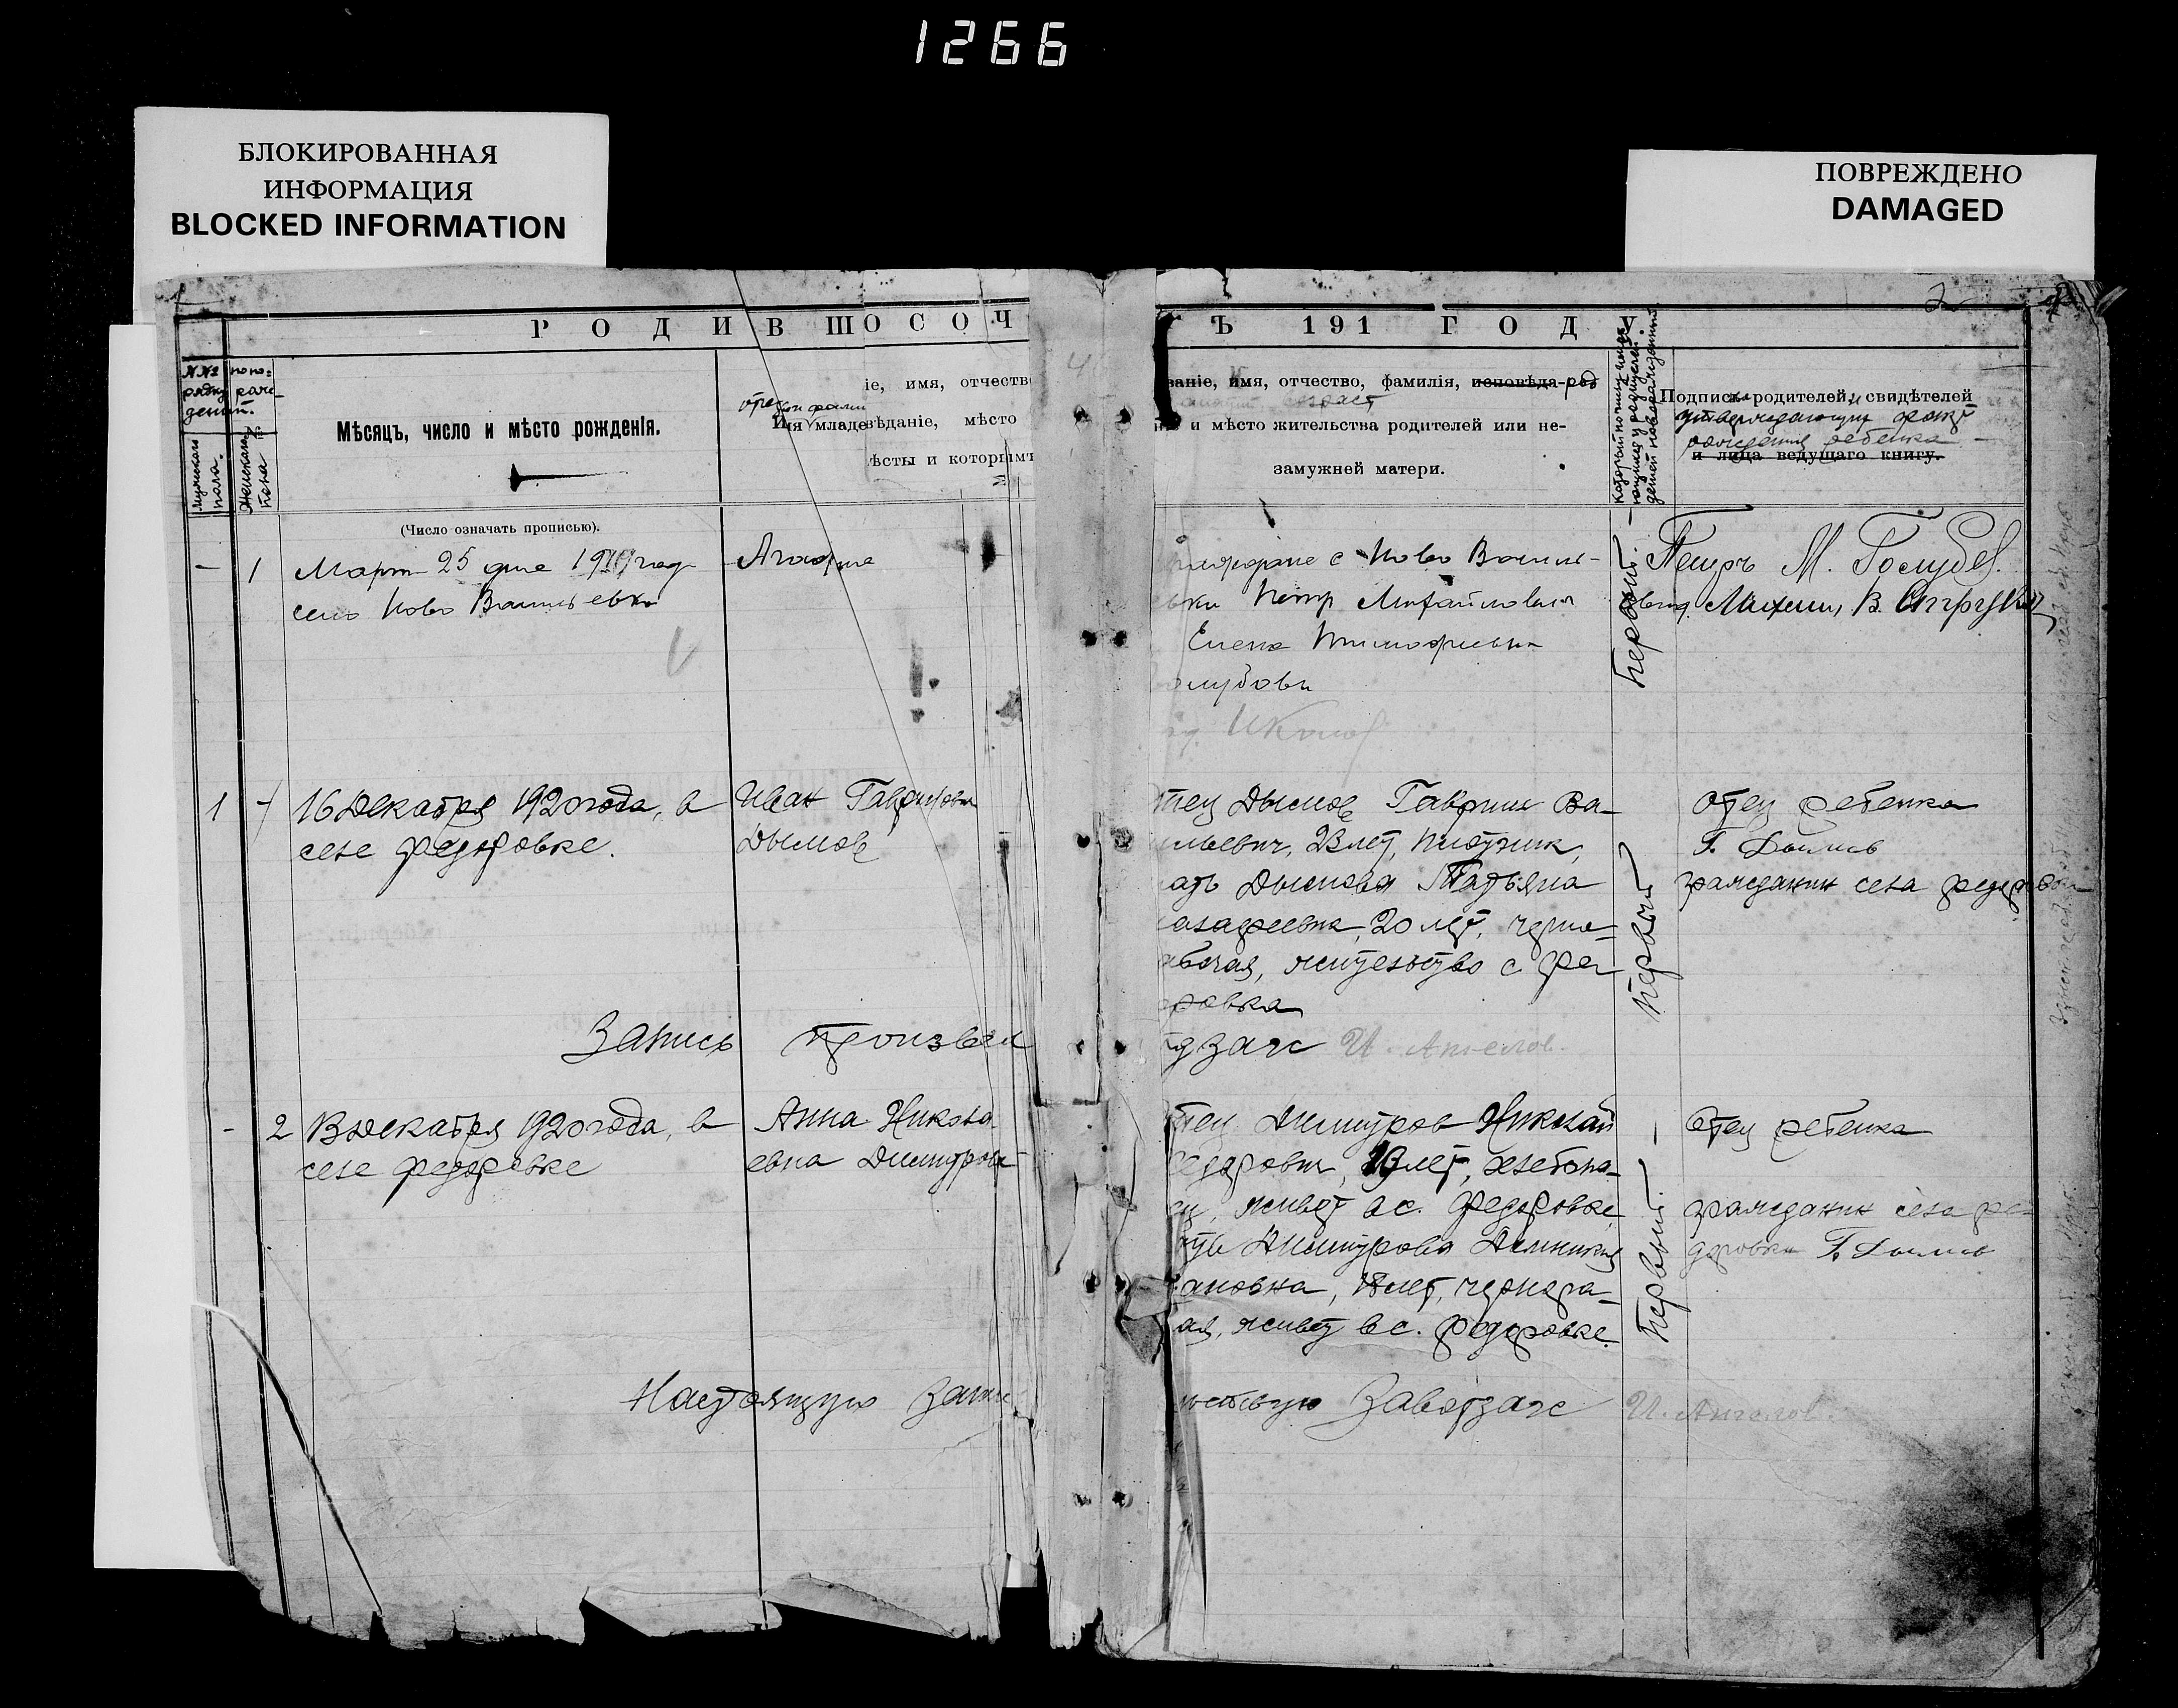 1266
БЛОКИРОВАННАЯ
ИНФОРМАЦИЯ
BLOCKED INFORMATION
ПОВРЕЖДЕНО
DAMAGED
2
Р О Д И В Ш О С О Ч
Ъ 191 Г О Д У.
Мѣсяцъ, число и мѣсто рожденія.
(Число означать прописью).
Имя младе
іе, имя, отчеств
вѣданіе, мѣсто
ѣсты и которымъ
ваніе, имя, отчество, фамилія, исповѣда-
и мѣсто жительства родителей или не-
замужней матери.
Подписи родителей, свидѣтелей
утверждающих факт
рождения ребенка
и лица ведущаго книгу.
Мужскаго пола.
Женскаго пола
- 1
Март 25 дня год
село Ново Васильевка
Агафия
граждане с Ново Василь-
евки Петр Михайлович
Елена Тимофиевна
олубовы
Первый.
Петръ М. Голубев.
1 -
16 Декабря 1920 года, в
селе Федоровке.
Иван Гаврилович
Дымов
тец Дымов Гавриил Ва-
ильевич, 23 лет, плотник,
ать Дымова Татьяна
20 лет, черно-
абочая, жительство с Фе-
оровка
Первый
Отец ребенка
Г. Дымов
гражданин села Федоровки
Запись произвел
дзагс И. Ангелов.
- 2
декабря 1920 года, в
селе Федоровке
Анна Никола
евна Димитрова
тец Димитров Николай
едорович, лет, хлебопа-
ц, живет в с. Федоровке,
ть Димитрова
ановна, 18 лет, чернора-
ая, живет в с. Федоровке.
Первый.
Отец ребенка
гражданин села Фе-
доровки Г. Дымов
Настоящую запис
льствую Завотзагс И. Ангелов